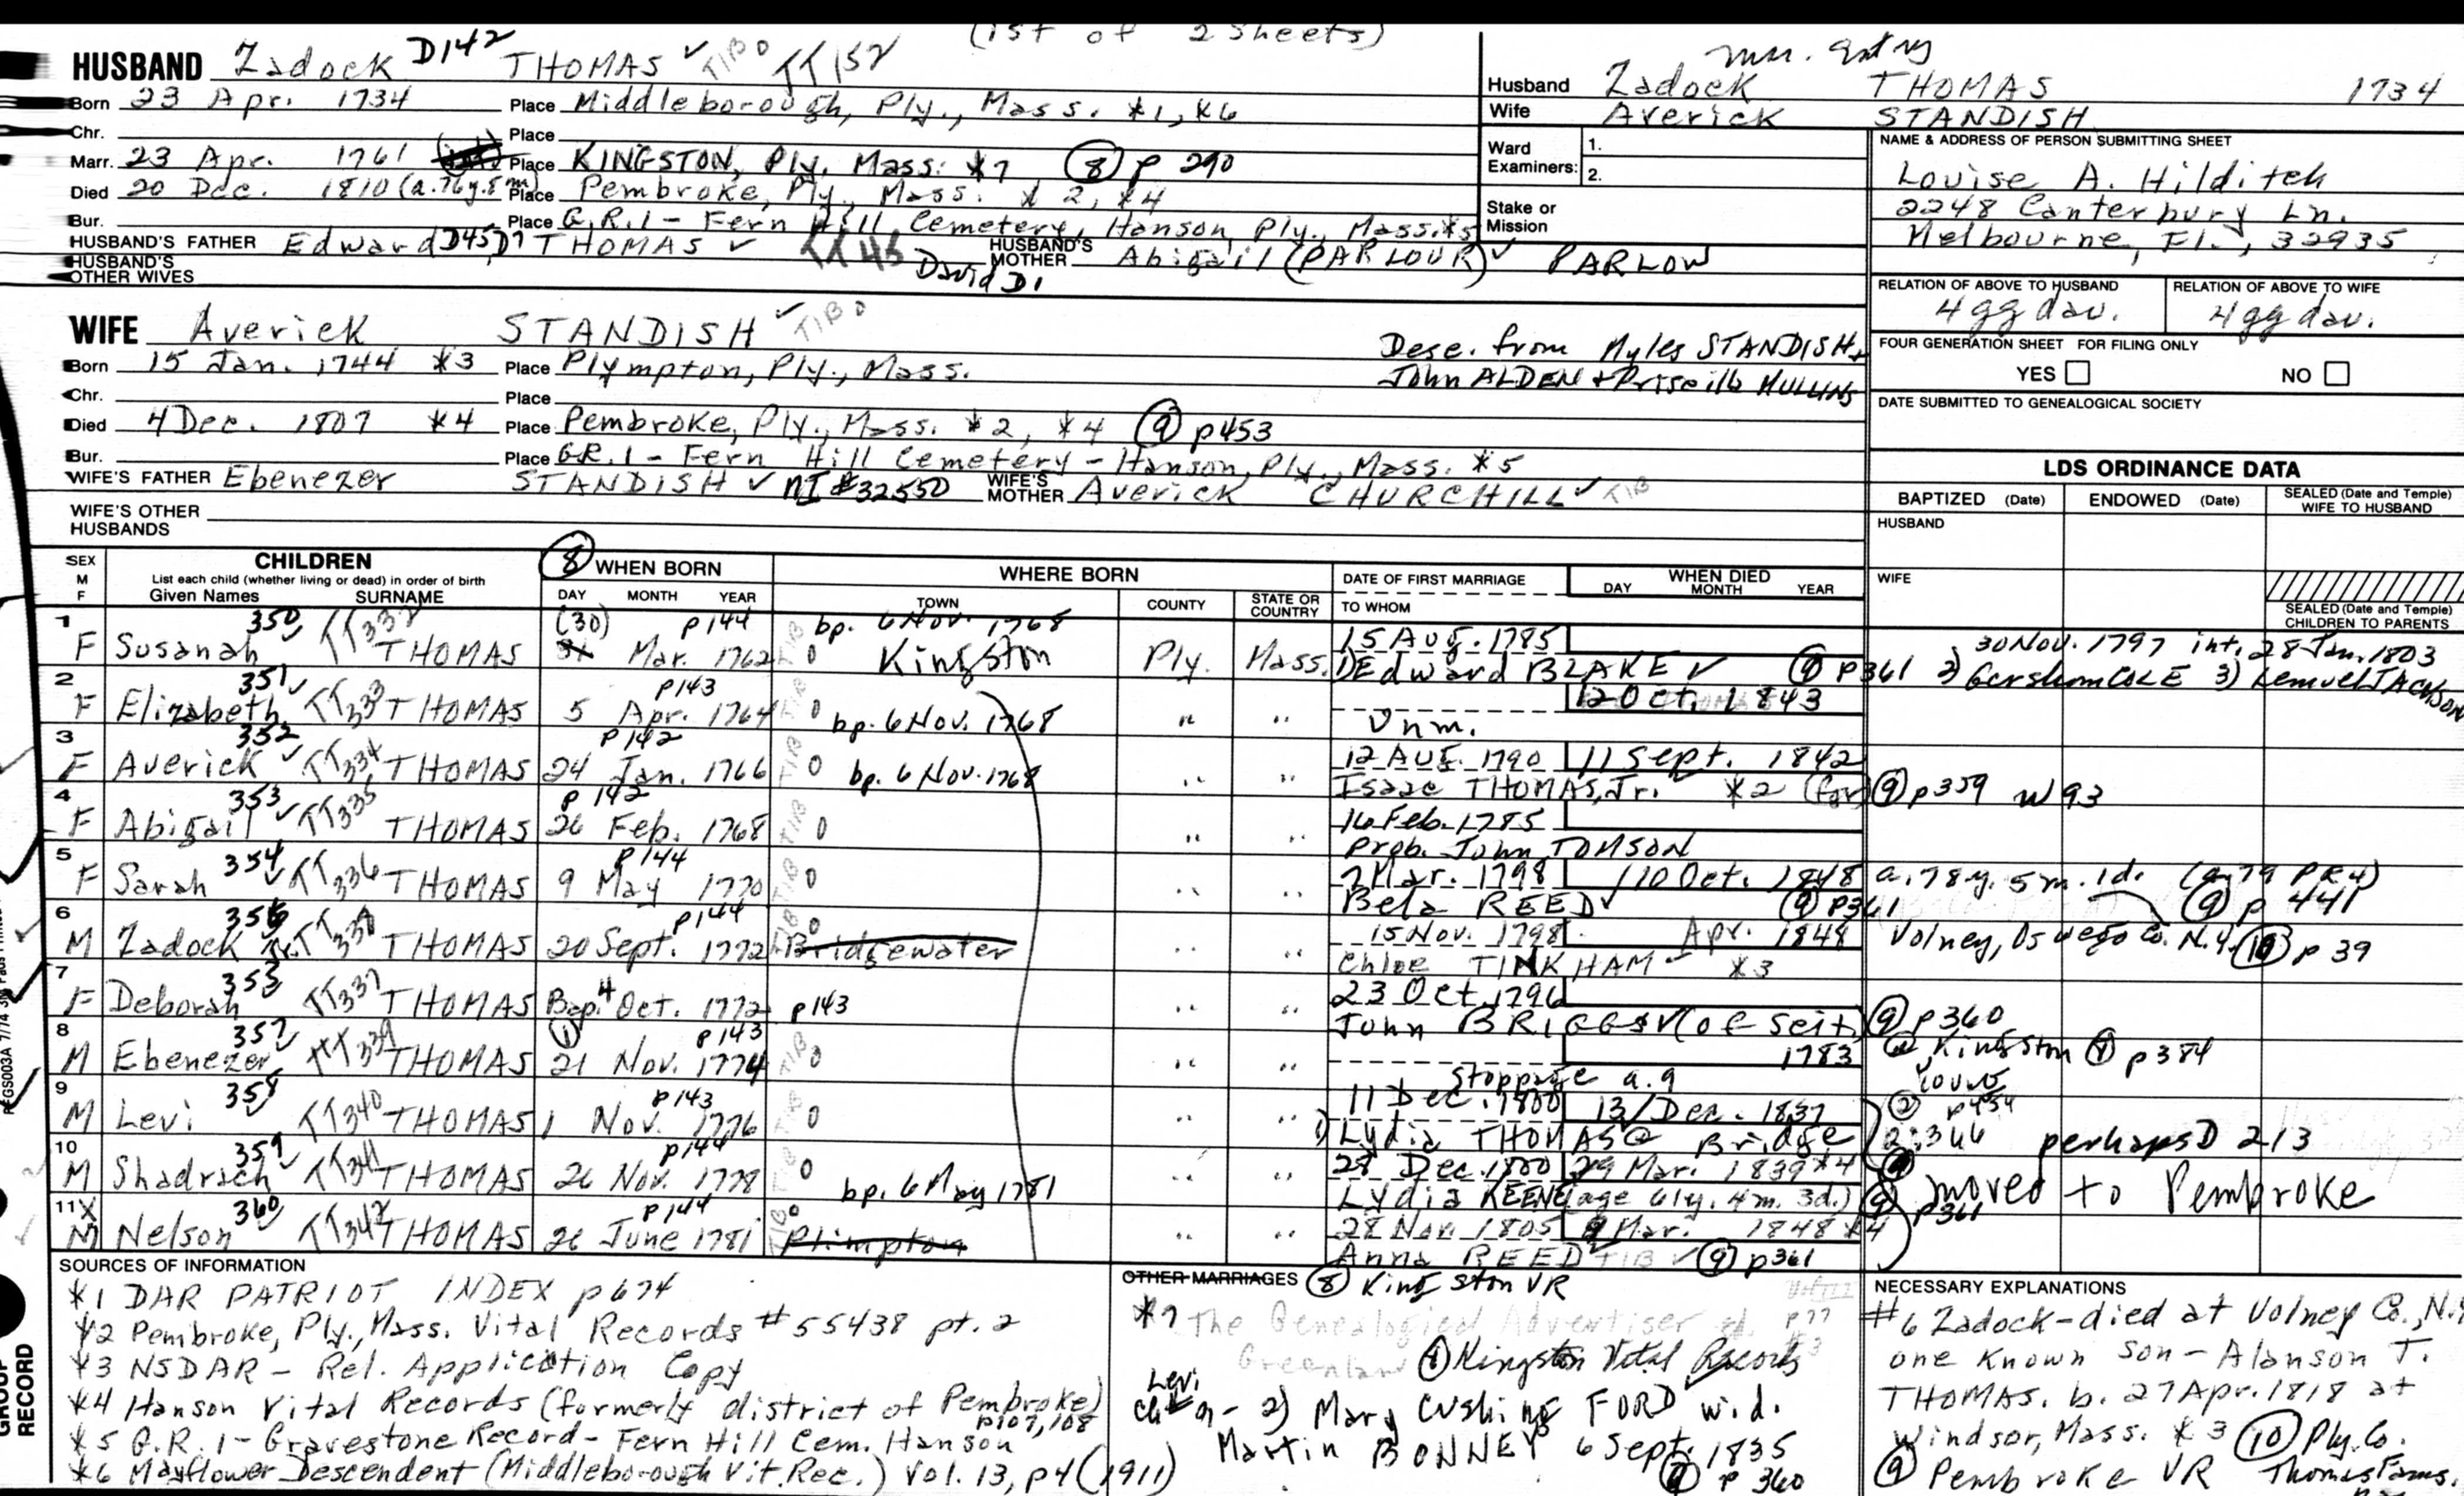 (1st of 2 sheets)
HUSBAND Zadock D142 THOMAS ✓ TIB 0 TT152
Born 23 Apr. 1734 Place Middleborough, Ply., Mass. *1, *6
Chr. Place
Marr. 23 Apr. 1761 Place KINGSTON, Ply, Mass: *7 (8) p 290
Died 20 Dec. 1810 (a. 76y. 8m) Place Pembroke, Ply., Mass. * 2, *4
Bur. Place G.R.1 - Fern Hill Cemetery, Hanson, Ply., Mass. *5
HUSBAND'S FATHER Edward D45, D7 THOMAS ✓ TT45 David D1 HUSBAND'S MOTHER Abigail (PARLOUR) ✓ PARLOW
HUSBAND'S OTHER WIVES
WIFE Averick STANDISH ✓ TIB 0
Desc. from Myles STANDISH +
John ALDEN + Priscilla MULLINS
Born 15 Jan. 1744 *3 Place Plympton, Ply., Mass.
Chr. Place
Died 4 Dec. 1807 *4 Place Pembroke, Ply., Mass. *2, *4 (9) p453
Bur. Place G.R.1 - Fern Hill Cemetery - Hanson, Ply., Mass. *5
WIFE'S FATHER Ebenezer STANDISH ✓ nI #32550 WIFE'S MOTHER Averick CHURCHILL ✓ TIB
WIFE'S OTHER HUSBANDS
Husband Zadock THOMAS 1734
Wife Averick STANDISH
Ward Examiners: 1.
2.
Stake or Mission
NAME & ADDRESS OF PERSON SUBMITTING SHEET
Louise A. Hilditch
2248 Canterbury Ln.
Melbourne, Fl., 32935
RELATION OF ABOVE TO HUSBAND RELATION OF ABOVE TO WIFE
4 gg dau. 4 gg dau.
FOUR GENERATION SHEET FOR FILING ONLY
YES NO
DATE SUBMITTED TO GENEALOGICAL SOCIETY
LDS ORDINANCE DATA
BAPTIZED (Date) ENDOWED (Date) SEALED (Date and Temple) WIFE TO HUSBAND
HUSBAND
WIFE
SEALED (Date and Temple) CHILDREN TO PARENTS
SEX M F CHILDREN (8) WHEN BORN WHERE BORN DATE OF FIRST MARRIAGE WHEN DIED
List each child (whether living or dead) in order of birth
Given Names SURNAME DAY MONTH YEAR TOWN COUNTY STATE OR COUNTRY TO WHOM DAY MONTH YEAR
1 350 TT332 (30) p144 bp. 6 Nov. 1768 15 Aug. 1785 30 Nov. 1797 int. 28 Jan. 1803
F Susanah THOMAS Mar. 1762 TIB 0 Kingston Ply. Mass. 1) Edward BLAKE ✓ (9) p361 2) Gershom COLE 3) Lemuel JACKSON
2 351 TT333 p143 12 Oct. 1843
F Elizabeth THOMAS 5 Apr. 1764 TIB 0 bp. 6 Nov. 1768 " " Unm.
3 352 TT334 p142 12 Aug. 1790 11 Sept. 1842
F Averick THOMAS 24 Jan. 1766 TIB 0 bp. 6 Nov. 1768 " " Isaac THOMAS, Jr. *2 (for) (9) p359 w 93
4 353 TT335 p142 16 Feb. 1785
F Abigail THOMAS 26 Feb. 1768 TIB 0 " " Prob. John TOMSON
5 354 TT336 p144 7 Mar. 1798 10 Oct. 1848 a. 78 y. 5 m. 1d. (a. 79 PR4)
F Sarah THOMAS 9 May 1770 TIB 0 " " Bela REED ✓ (9) p361 (9) p 441
6 p144 15 Nov. 1798 Apr. 1848
M Zadock THOMAS 20 Sept. 1772 TIB 0 Bridgewater " " Chloe TINKHAM *3 Volney, Oswego Co. N.Y. (10) p 39
7 353 TT337 23 Oct. 1796
F Deborah THOMAS Bap. 4 Oct. 1772 p143 " " John BRIGGS ✓ (of Scit.) (9) p360
8 357 TT339 (1) p143 1783 @ Kingston (8) p384
M Ebenezer THOMAS 21 Nov. 1774 TIB 0 " " Stoppage a. 9
9 358 TT340 p143 11 Dec. 1800 13/Dec. 1837 (2) p454
M Levi THOMAS 1 Nov. 1776 TIB 0 " " 1) Lydia THOMAS @ Bridge 2:366 perhaps D 213
10 359 TT341 p144 28 Dec. 1800 29 Mar. 1839 *4
M Shadrach THOMAS 26 Nov. 1778 TIB 0 bp. 6 May 1781 " " Lydia KEENE (age 61y. 4m. 3d.) (9) p361 moved to Pembroke
11 360 TT342 p144 28 Nov. 1805 9 Mar. 1848 *4
M Nelson THOMAS 26 June 1781 TIB 0 Plimpton " " Anna REED TIB ✓ (9) p361
SOURCES OF INFORMATION
*1 DAR PATRIOT INDEX p674
*2 Pembroke, Ply., Mass. Vital Records #55438 pt. 2
*3 NSDAR - Rel. Application Copy
*4 Hanson Vital Records (formerly district of Pembroke) p107,108
*5 G.R.1 - Gravestone Record - Fern Hill Cem. Hanson
*6 Mayflower Descendent (Middleborough Vit. Rec.) Vol. 13, p4 (1911)
OTHER MARRIAGES (8) Kingston VR
*7 The Genealogical Advertiser p77
Greenlaw Kingston Vital Records
Levi
ch 9 - 2) Mary Cushing FORD wid.
Martin BONNEY 6 Sept. 1835
(9) p 360
NECESSARY EXPLANATIONS
#6 Zadock - died at Volney Co., N.Y.
one known son - Alanson T.
THOMAS. b. 27 Apr. 1818 at
Windsor, Mass. *3 (10) Ply. Co.
(9) Pembroke VR Thomas Fams.
GROUP RECORD